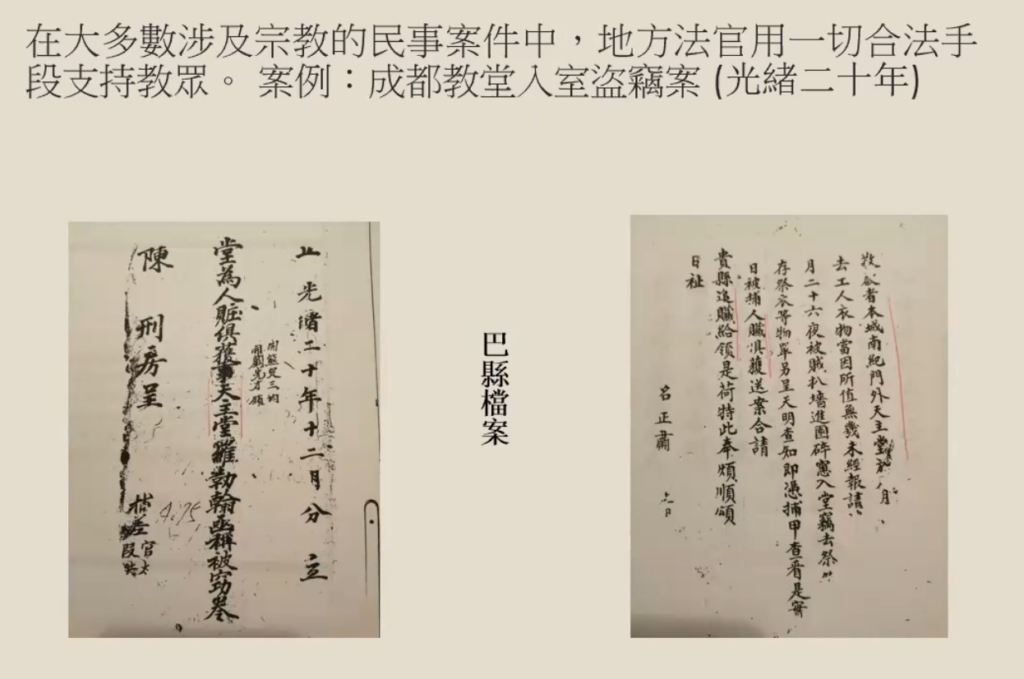 在大多數涉及宗教的民事案件中，地方法官用一切合法手
段支持教眾。 案例：成都教堂入室盜竊案 (光緒二十年)
光緒二十年十二月分 立
堂為人賍俱獲事天主堂羅勃翰函稱被竊卷
陳 刑房呈
4.75
巴縣檔案
敬啟者本城南紀門外天主堂於 月
去工人衣物當因所值無幾未經報請
月二十六夜被賊扒墻進園碎窻入堂竊去祭
存祭衣等物單另呈天明查知即憑捕甲查看是實
日被捕人贓俱獲送案合請
貴縣追贓給領是荷特此奉煩順頌
日祉
呂正肅